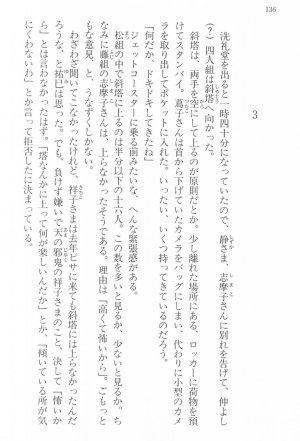 136
3
洗礼堂を出ると一時四十分になっていたので、静さま、志摩子さんに別れを告げて、仲よし
(?)四人組は斜塔へ向かった。
斜塔は、両手を空にして上るのが原則だとか。少し離れた場所にある、ロッカーに荷物を預
けてスタンバイ。蔦子さんは首から下げていたカメラをバッグにしまい、代わりに小型のカメ
ラを取り出してポケットに入れた。いったい、いくつ持ってきているのだろう。
「何だか、ドキドキしてきたね」
ジェットコースターに乗る前みたいな、へんな緊張感がある。
松組の中で斜塔に上るのは半分以下の十六人。この数を多いと見るか、少ないと見るか。ち
なみに藤組の志摩子さんは、上らなかったそうである。理由は「高くて怖いから」。ごもっと
もな意見、と、うなずくしかない。
わざわざ聞いてこなかったけれど、祥子さまは去年ピサに来ても斜塔には上らなかったんだ
な、と祐巳は思った。でも、負けず嫌いで天の邪鬼の祥子さまのこと、決して「怖いか
ら」とは言わなかったはず。「塔なんかに上って何が楽しいんだか」とか、「傾いている所が気
にくわないわ」とか言って拒否したに決まっている。